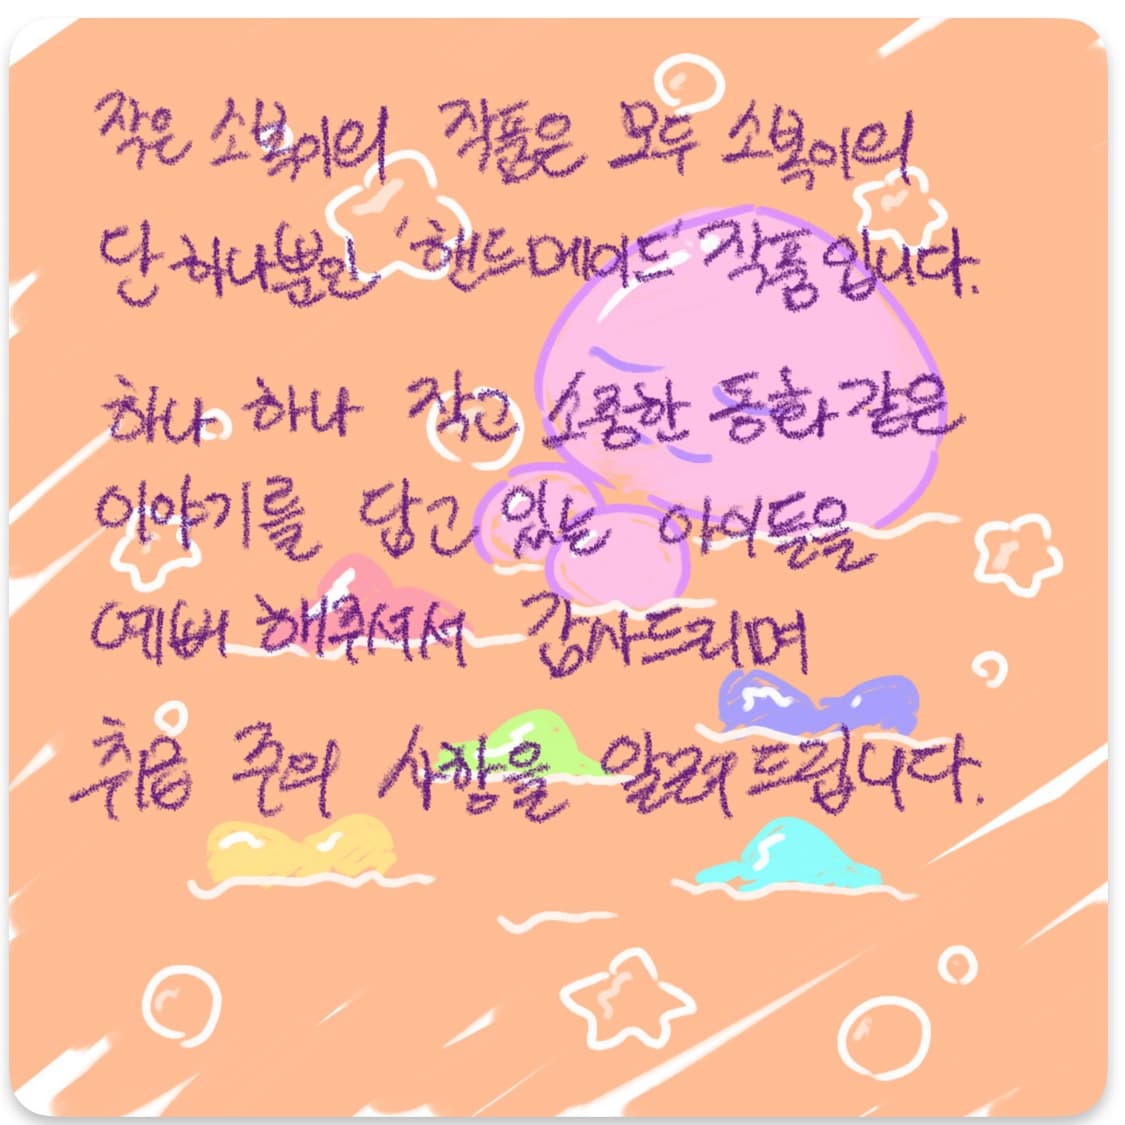 작은 소복이의 작품은 모두 소복이의
단 하나뿐인 '핸드메이드' 작품입니다.
하나 하나 작고 소중한 동화 같은
이야기를 담고 있는 아이들을
예뻐 해주셔서 감사드리며
취급 주의 사항을 알려드립니다.